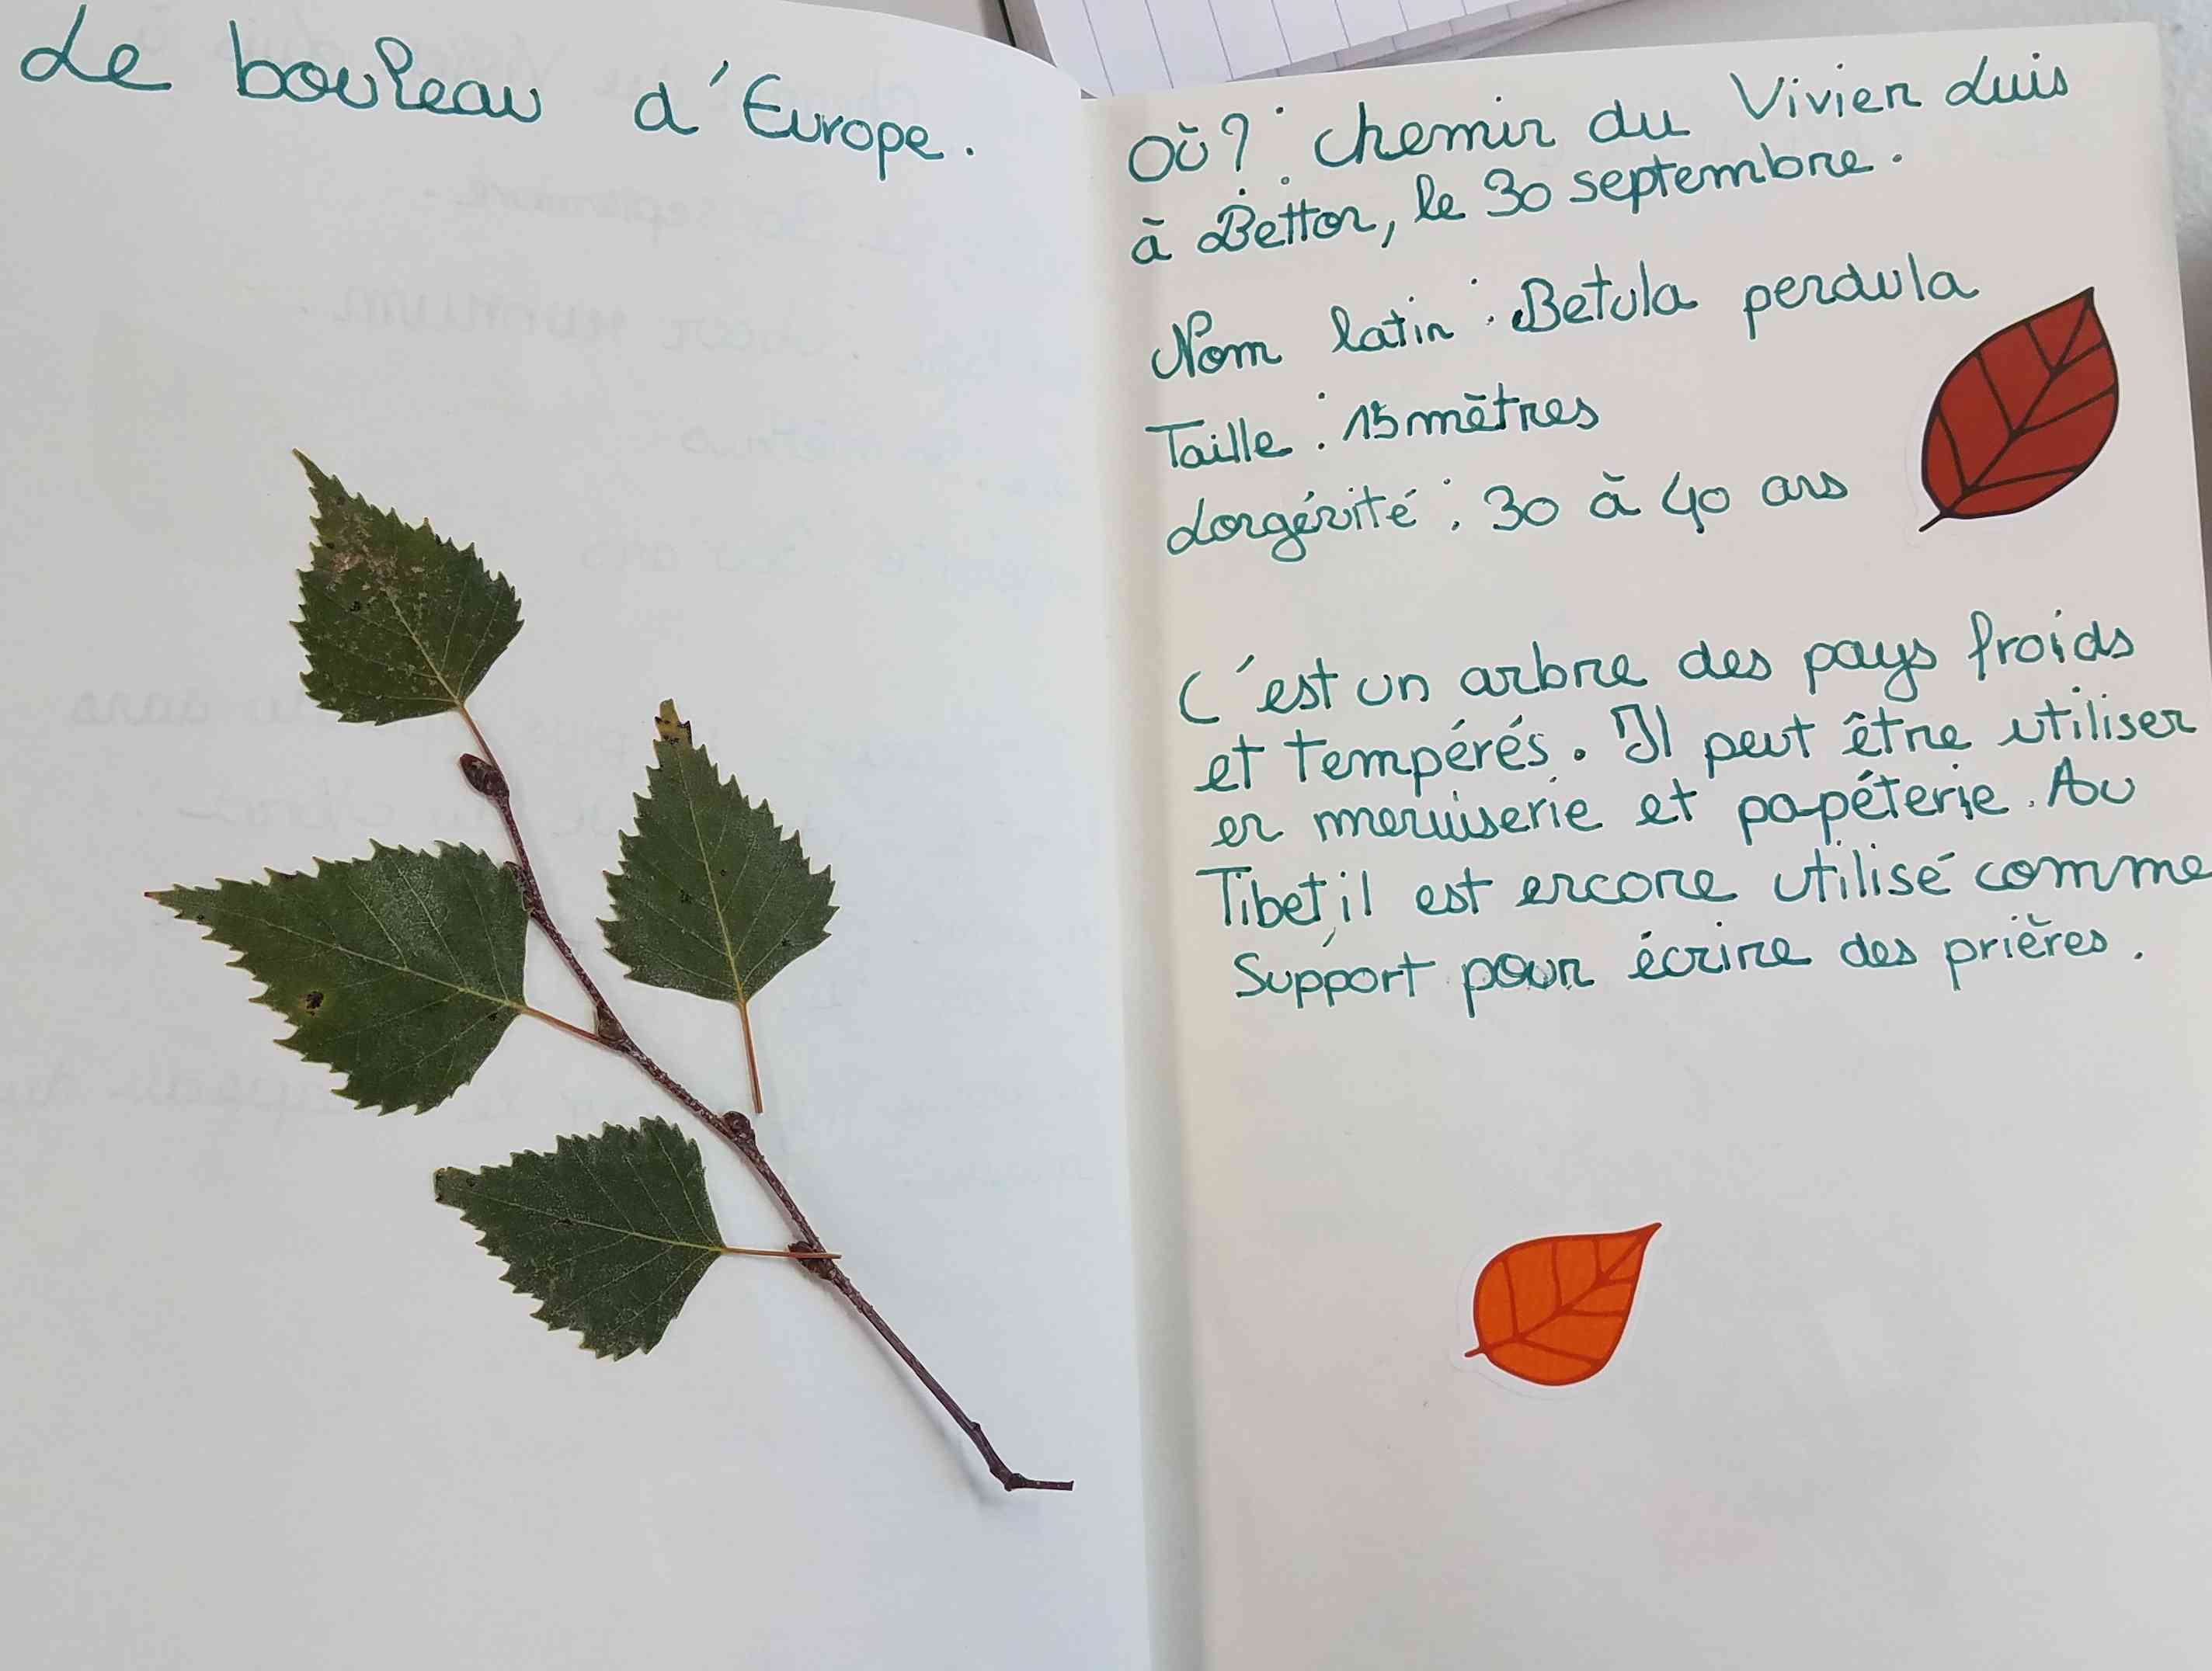 Le bouleau d'Europe.
Où? : chemin du Vivier Luis
à Betton, le 30 septembre.
Nom latin : Betula pendula
Taille : 15 mètres
Longévité : 30 à 40 ans
C'est un arbre des pays froids
et tempérés. Il peut être utiliser
en menuiserie et papéterie. Au
Tibet, il est encore utilisé comme
support pour écrire des prières.